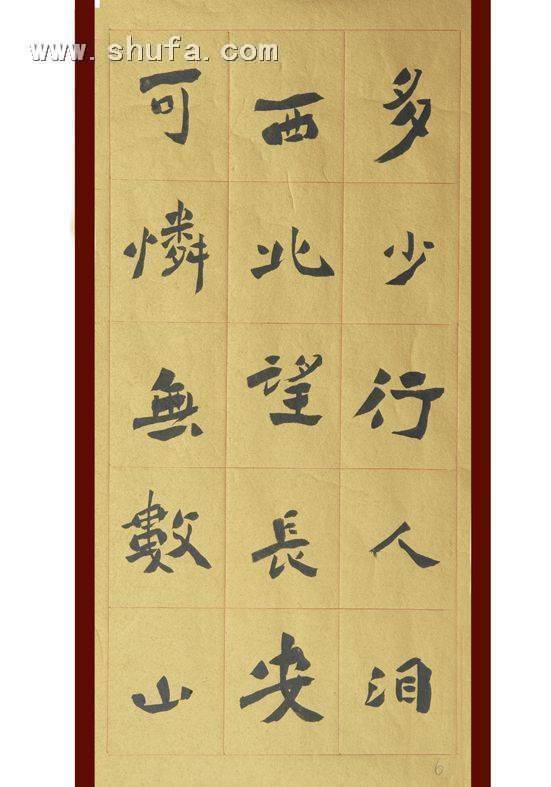 www.shufa.com
多少行人泪
西北望長安
可憐無數山
6